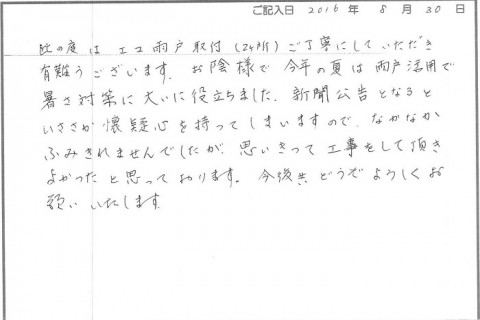 ご記入日 2016年 8月 30日
此の度は エコ雨戸取付(2ヶ所)ご丁寧にしていただき
有難うございます。お陰様で 今年の夏は 雨戸活用で
暑さ対策に大いに役立ちました。新聞公告となると
いささか懐疑心を持ってしまいますので、なかなか
ふみきれませんでしたが 思いきって工事をして頂き
よかったと思っております。今後共 どうぞよろしくお
願い いたします。